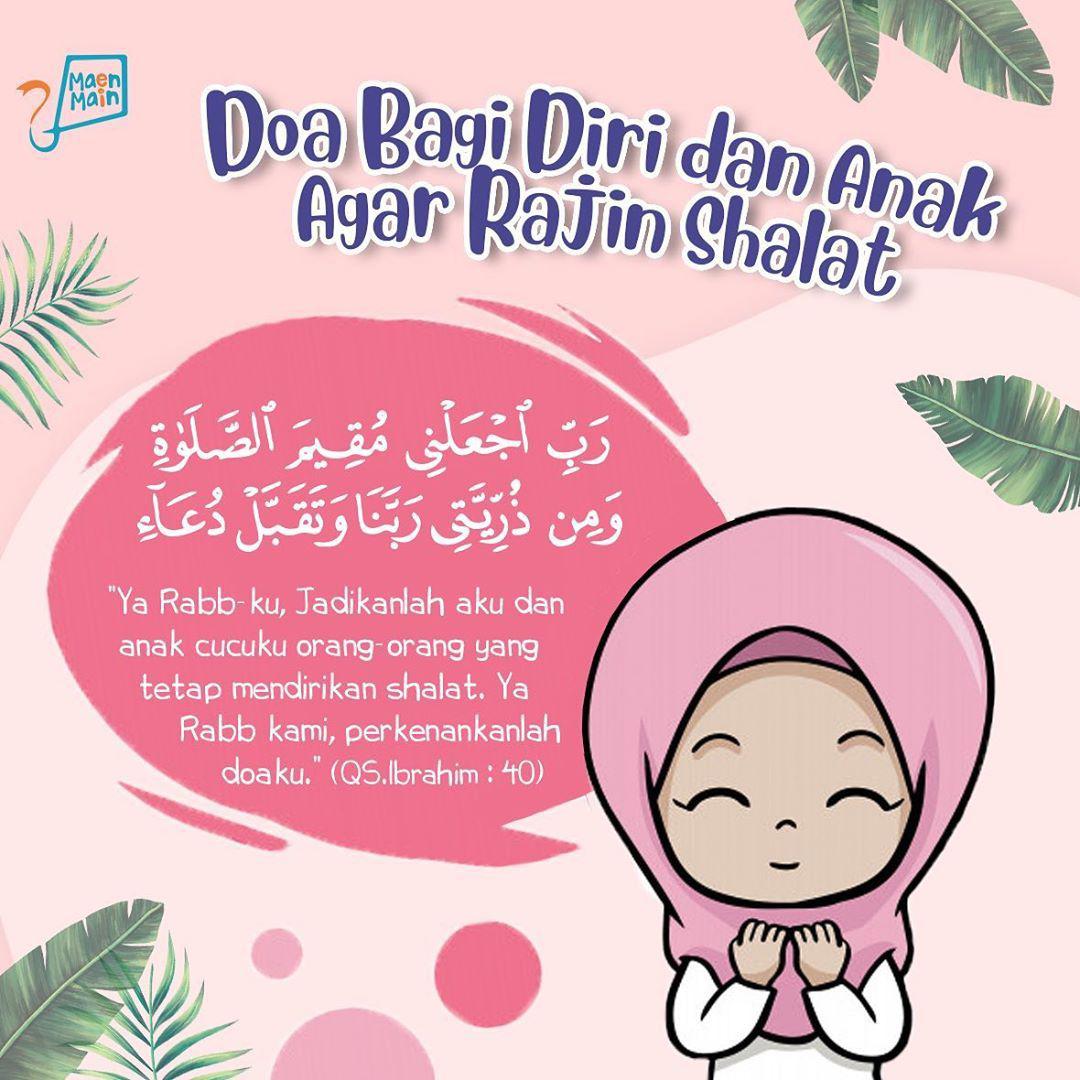 Maen
Main
Doa Bagi Diri dan Anak
Agar Rajin Shalat
رَبِّ ٱجْعَلْنِى مُقِيمَ ٱلصَّلَوٰةِ
وَمِن ذُرِّيَّتِى رَبَّنَا وَتَقَبَّلْ دُعَآءِ
"Ya Rabb-ku, Jadikanlah aku dan
anak cucuku orang-orang yang
tetap mendirikan shalat. Ya
Rabb kami, perkenankanlah
doaku." (QS.Ibrahim : 40)